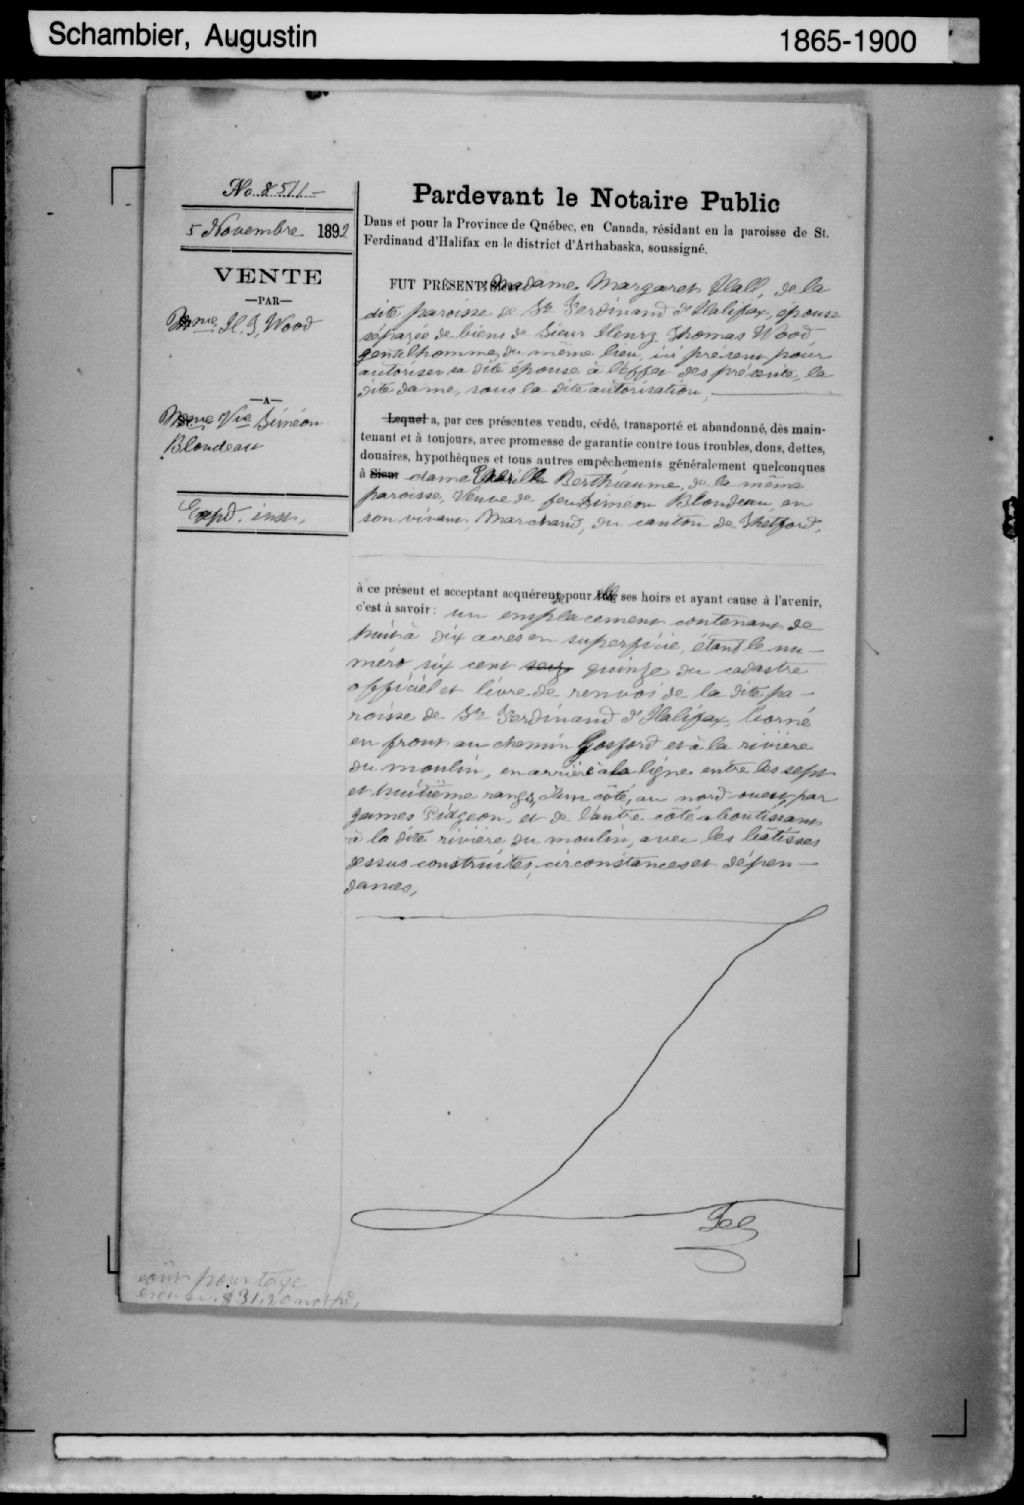 Schambier, Augustin
1865-1900
No 8511-
5 Novembre 1892
VENTE
—PAR—
Mme H. T. Wood
—A—
Mme Vve Siméon
Blondeau
Expd. insn,
Pardevant le Notaire Public
Dans et pour la Province de Québec, en Canada, résidant en la paroisse de St.
Ferdinand d'Halifax en le district d'Arthabaska, soussigné.
FUT PRÉSENT: Madame Margaret Hall, de la
dite paroisse de St Ferdinand d'Halifax, épouse
séparée de biens de Sieur Henry Thomas Wood
gentilhomme, du même lieu, ici présent pour
autoriser sa dite épouse à l'effet des présente, la
dite dame, sous la dite autorisation,
Lequel a, par ces présentes vendu, cédé, transporté et abandonné, dès main-
tenant et à toujours, avec promesse de garantie contre tous troubles, dons, dettes,
douaires, hypothèques et tous autres empêchements généralement quelconques
à Sieur dame Berthiaume, de la même
paroisse, Veuve de feu Siméon Blondeau, en
son vivant, Marchand, du canton de Thetford,
à ce présent et acceptant acquéreur pour elle ses hoirs et ayant cause à l'avenir,
c'est à savoir: un emplacement contenant de
huit à dix acres en superficie, étant le nu-
méro six cent seize quinze du cadastre
officiel et livre de renvoi de la dite pa-
roisse de St Ferdinand d'Halifax, borné
en front au chemin Gosford et à la rivière
du moulin, en arrière à la ligne entre les sept
et huitième rangs, d'un côté, au nord ouest, par
James Pidgeon, et de l'autre côté aboutissant
à la dite rivière du moulin, avec les bâtisses
dessus construites, circonstances et dépen-
dances,
coût pour taxe
$31,20